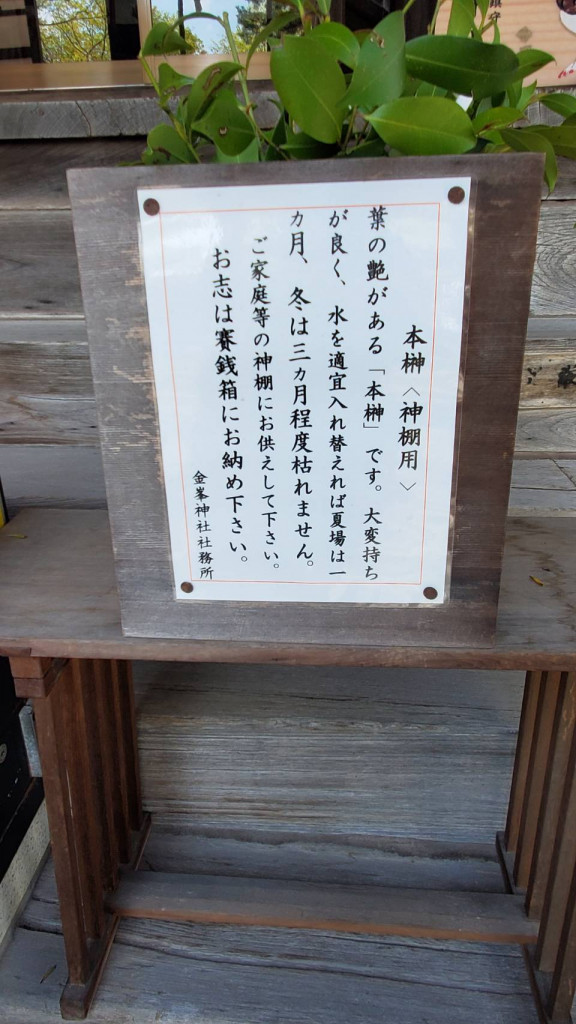 本榊〈神棚用〉
葉の艶がある「本榊」です。大変持ち
が良く、水を適宜入れ替えれば夏場は一
カ月、冬は三ヵ月程度枯れません。
ご家庭等の神棚にお供えして下さい。
お志は賽銭箱にお納め下さい。
金峯神社社務所